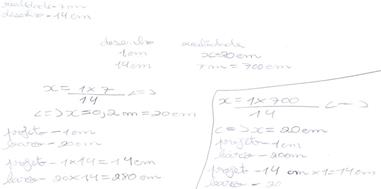 realidade - 7m
desenho - 14cm
desenho realidade
1cm x=20cm
14cm 7m = 700cm
x = 1x7 / 14 <=>
<=> x = 0,2m = 20cm
projeto - 1cm
barco - 20cm
projeto - 1x14 = 14cm
barco - 20x14 = 280cm
x = 1x700 / 14 <=>
<=> x = 20cm
projeto - 1cm
barco - 20cm
projet - 14 cm x1 = 14cm
barco - 20